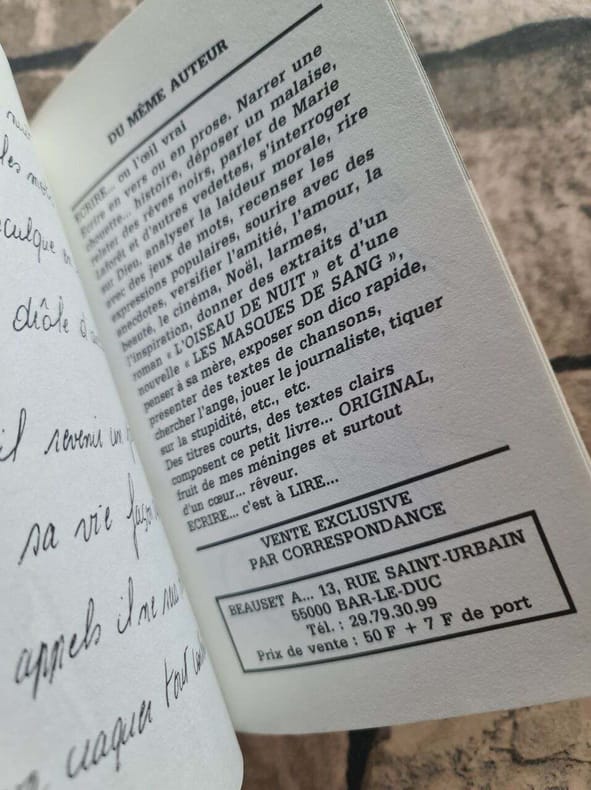 les
culque
drôle
il revenir un
sa vie façon
appels il ne
craquer tout
DU MÊME AUTEUR
ECRIRE... ou l'œil vrai
Ecrire en vers ou en prose. Narrer une
chouette... histoire, déposer un malaise,
relater des rêves noirs, parler de Marie
Laforêt et d'autres vedettes, s'interroger
sur Dieu, analyser la laideur morale, rire
avec des jeux de mots, recenser les
expressions populaires, sourire avec des
anecdotes, versifier l'amitié, l'amour, la
beauté, le cinéma, Noël, larmes,
l'inspiration, donner des extraits d'un
roman « L'OISEAU DE NUIT » et d'une
nouvelle « LES MASQUES DE SANG »,
penser à sa mère, exposer son dico rapide,
présenter des textes de chansons,
chercher l'ange, jouer le journaliste, tiquer
sur la stupidité, etc., etc.
Des titres courts, des textes clairs
composent ce petit livre... ORIGINAL,
fruit de mes méninges et surtout
d'un cœur... rêveur.
ECRIRE... c'est à LIRE...
VENTE EXCLUSIVE
PAR CORRESPONDANCE
BEAUSET A... 13, RUE SAINT-URBAIN
55000 BAR-LE-DUC
Tél. : 29.79.30.99
Prix de vente : 50 F + 7 F de port